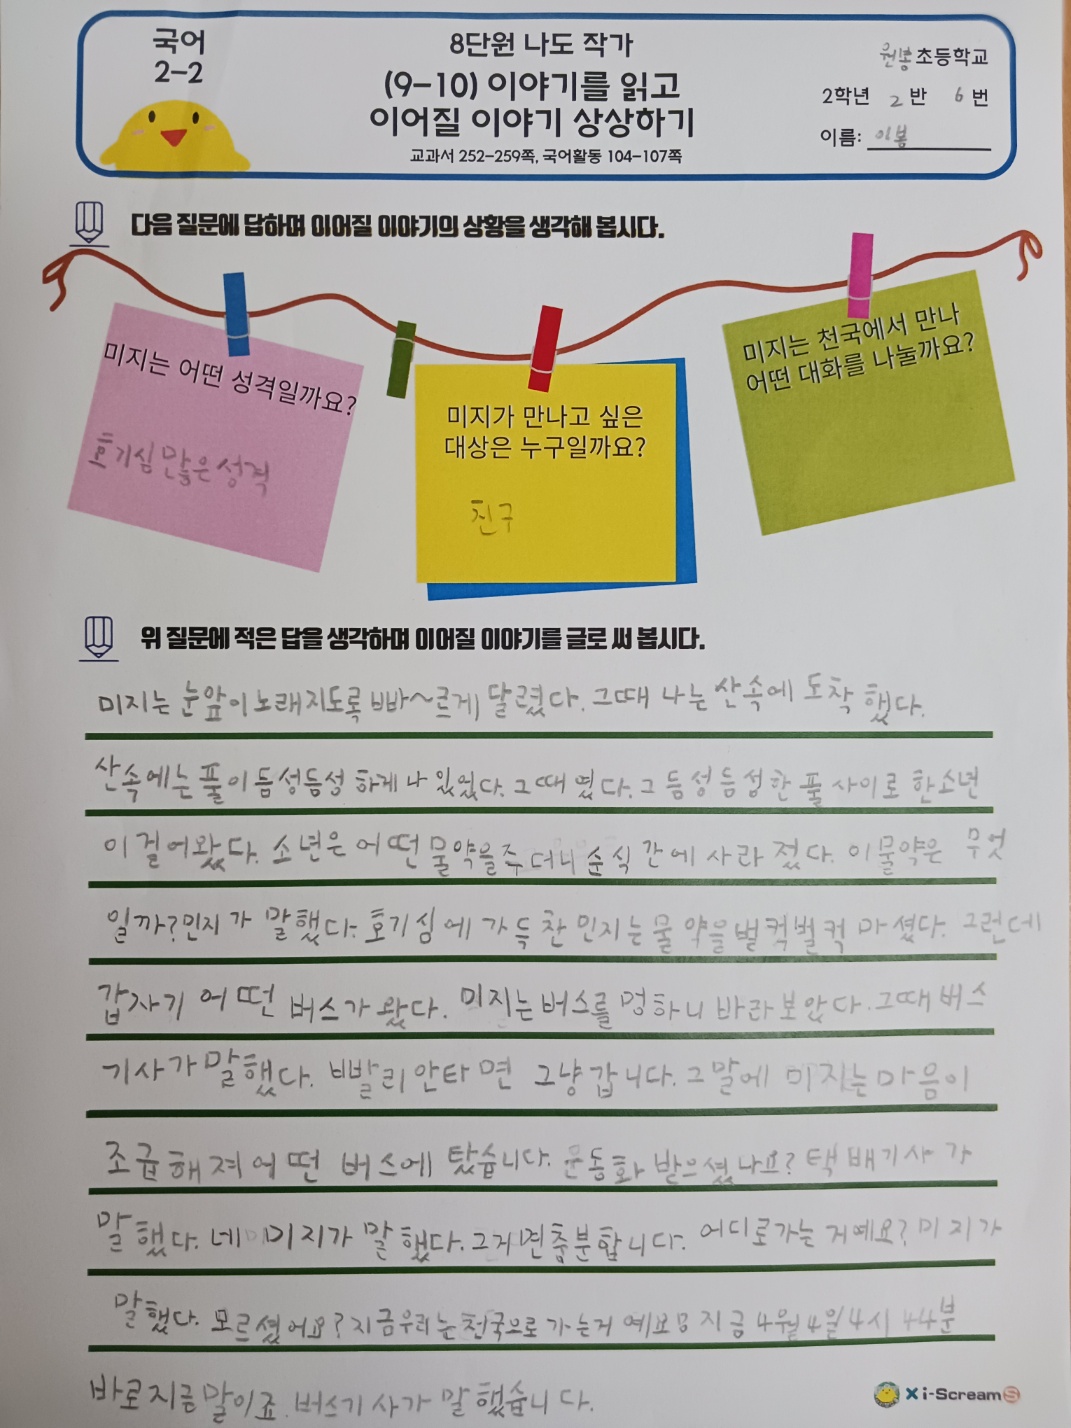 국어
2-2
8단원 나도 작가
(9-10) 이야기를 읽고
이어질 이야기 상상하기
교과서 252-259쪽, 국어활동 104-107쪽
원봉초등학교
2학년 2반 6번
이름: 이봄
다음 질문에 답하며 이어질 이야기의 상황을 생각해 봅시다.
미지는 어떤 성격일까요?
호기심 많은 성격
미지가 만나고 싶은
대상은 누구일까요?
친구
미지는 천국에서 만나
어떤 대화를 나눌까요?
위 질문에 적은 답을 생각하며 이어질 이야기를 글로 써 봅시다.
미지는 눈앞이 노래지도록 빠~르게 달렸다. 그때 나는 산속에 도착 했다.
산속에는 풀이 듬성듬성 하게 나 있었다. 그때 였다. 그 듬성듬성한 풀 사이로 한소년
이 걸어왔다. 소년은 어떤 물약을 주더니 순식간에 사라 졌다. 이물약은 무엇
일까? 민지가 말했다. 호기심에 가득 찬 민지는 물약을 벌컥벌컥 마셨다. 그런데
갑자기 어떤 버스가 왔다. 미지는 버스를 멍하니 바라보았다. 그때 버스
기사가 말했다. 빨리 안타면 그냥 갑니다. 그 말에 미지는 마음이
조급해져 어떤 버스에 탔습니다. 운동화 받으셨나요? 택배기사가
말했다. 네 미지가 말했다. 그거면 충분합니다. 어디로가는 거예요? 미지가
말했다. 모르셨어요? 지금우리는 천국으로 가는거 예요 지금 4월4일4시 44분
바로지금말이죠. 버스기사가 말했습니다.
i-Scream S